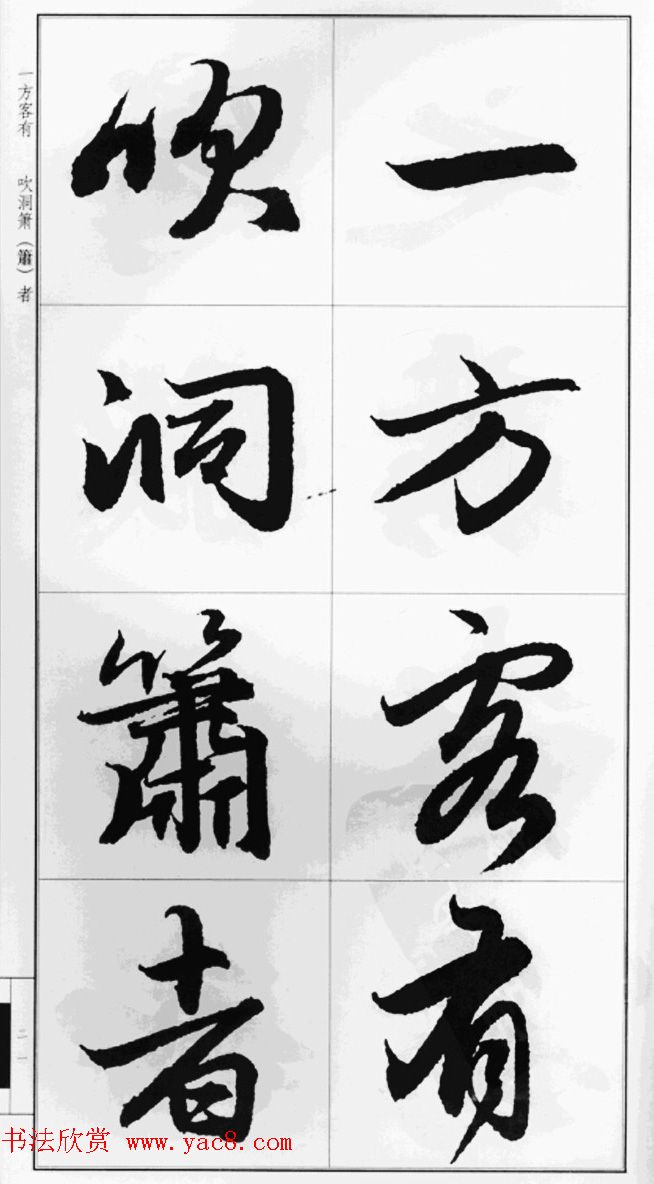 一方客有
吹洞簫者
一方客有 吹洞箫（簫）者
二一
书法欣赏 www.yac8.com